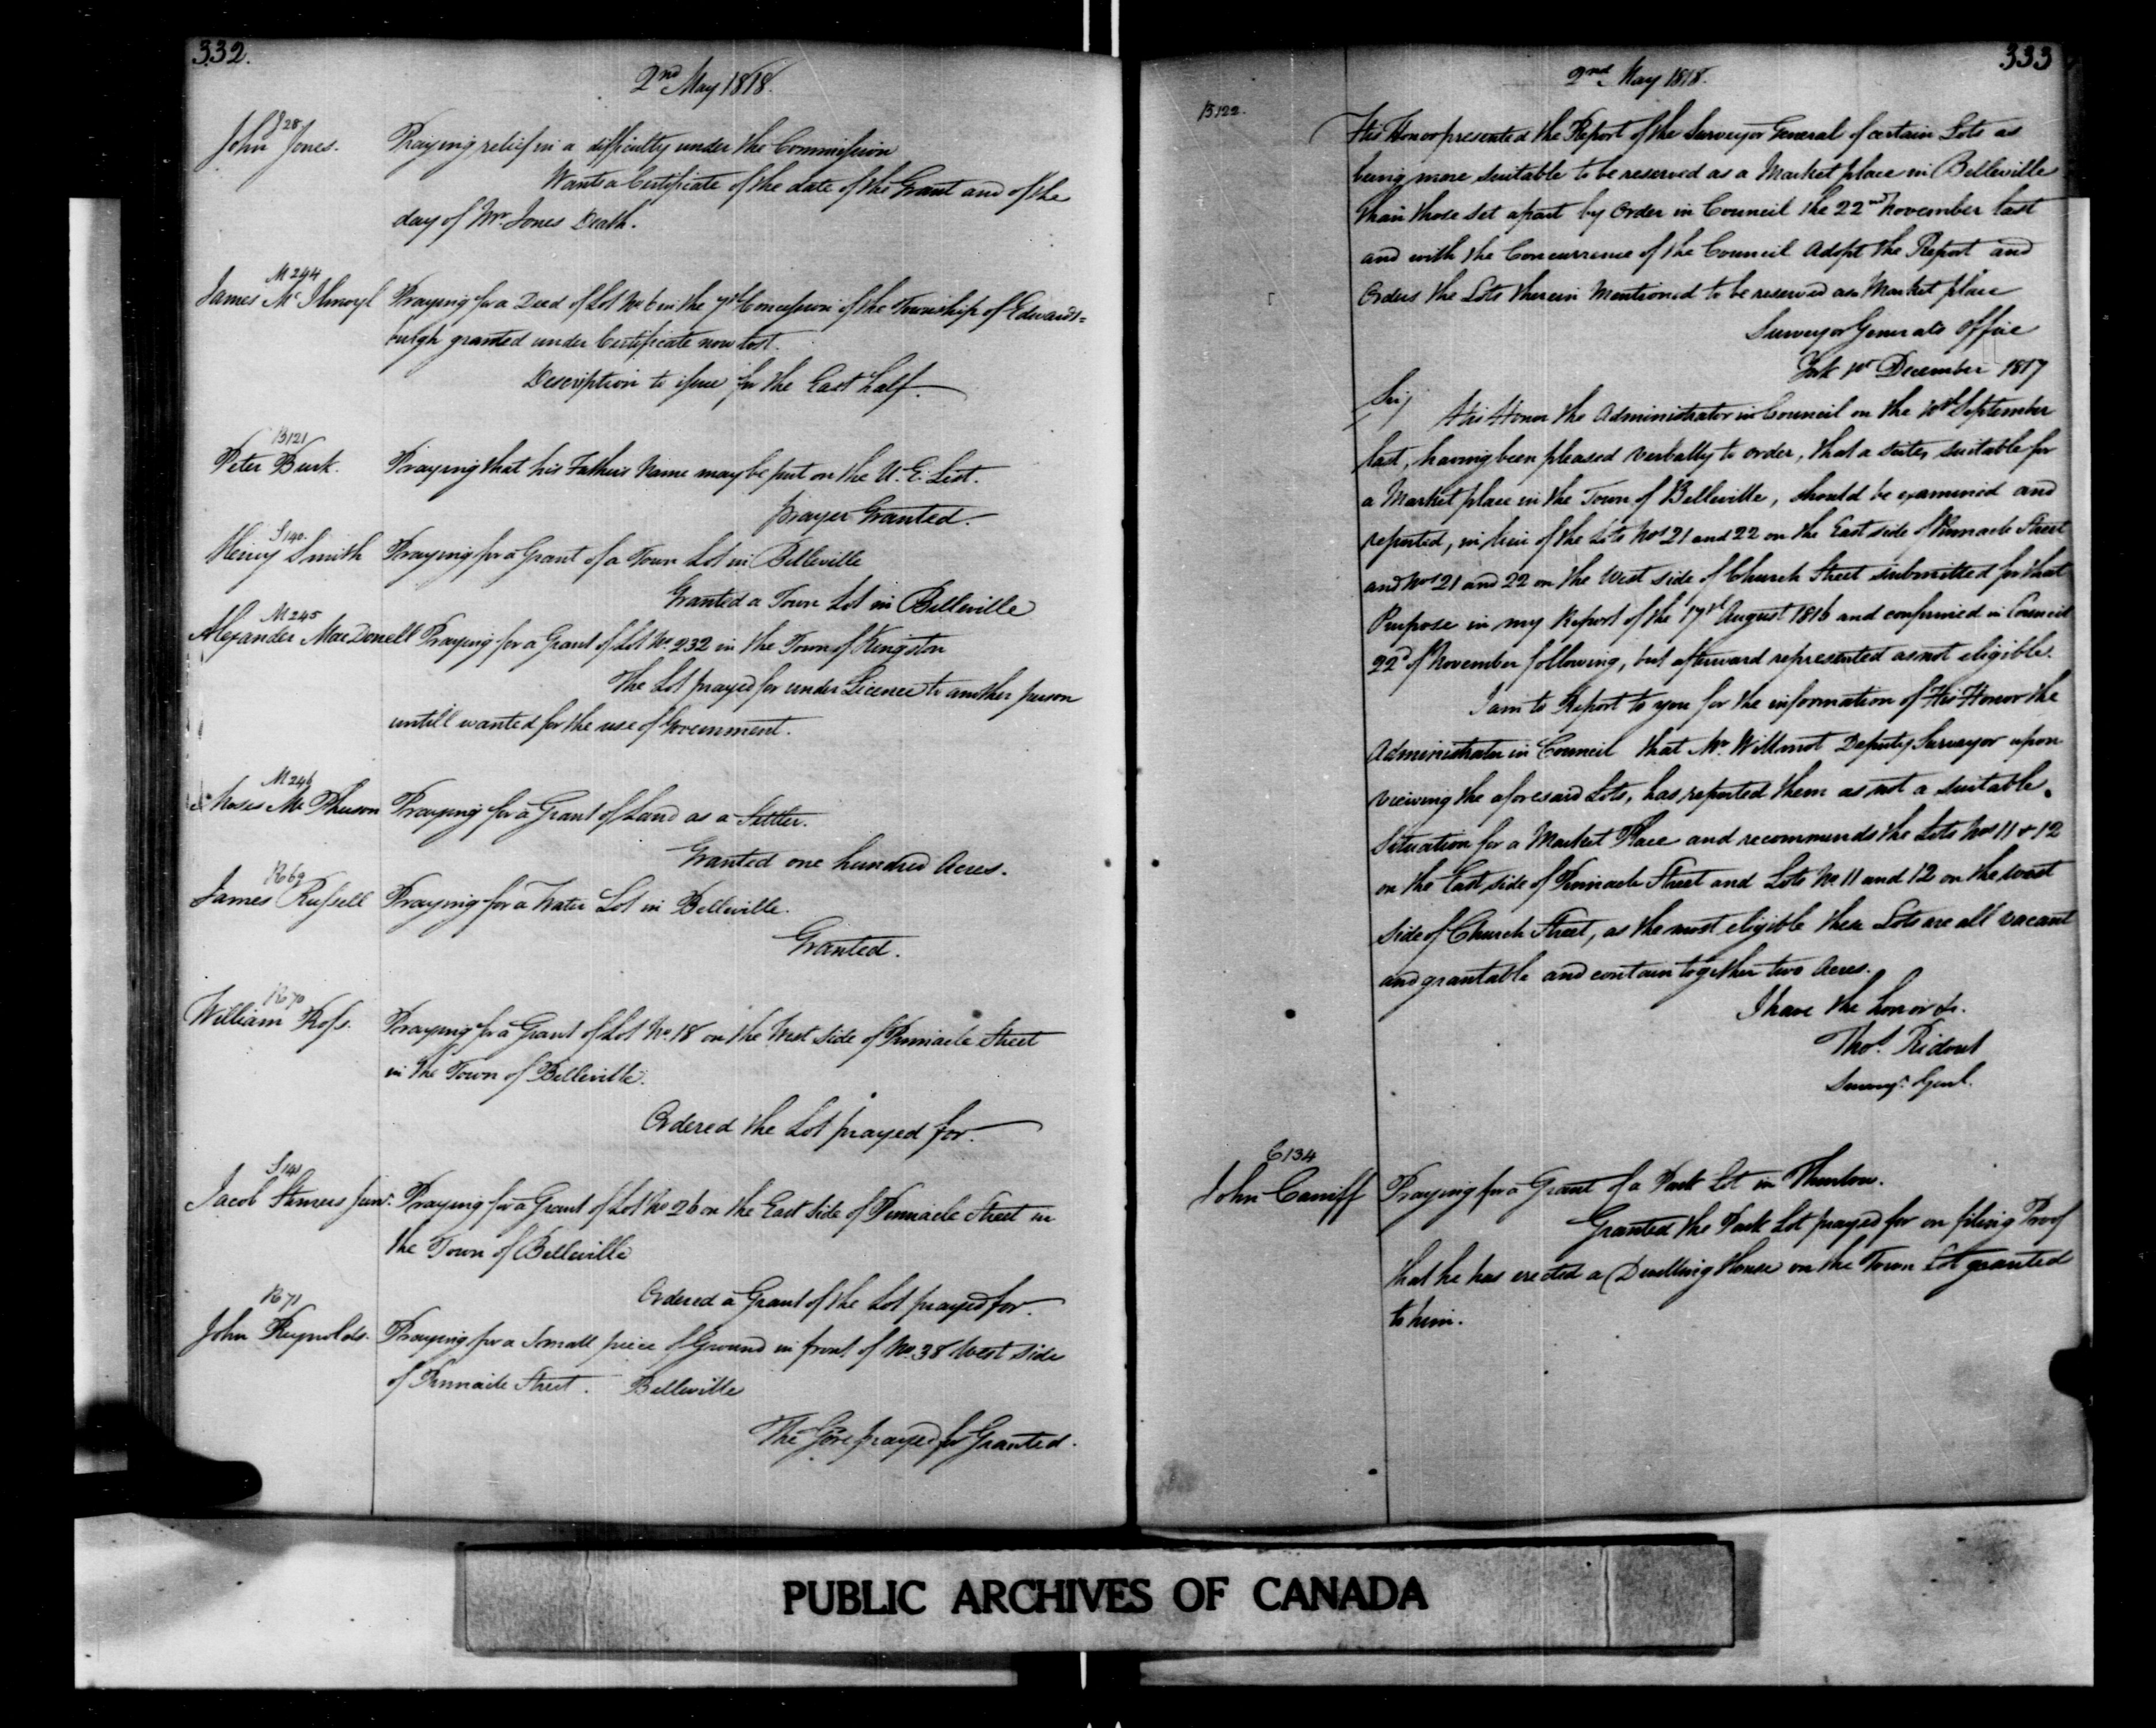 332.
2nd May 1818.
J 28
John Jones.
Praying relief in a difficulty under the Commission
Wants a Certificate of the date of the Grant and of the
day of Mr. Jones Death.
M 244
James McIlmoyl
Praying for a Deed of Lot No. 6 in the 7th Concession of the Township of Edwards=
burgh granted under Certificate now lost.
Description to issue for the East half.
B 121
Peter Burk.
Praying that his Fathers Name may be put on the U. E. List.
prayer Granted.
S 140.
Henry Smith
Praying for a Grant of a Town Lot in Belleville
Granted a Town Lot in Belleville
M 245
Alexander MacDonell
Praying for a Grant of Lot No. 232 in the Town of Kingston
The Lot prayed for under Licence to another person
untill wanted for the use of Government.
M 246
Moses McPherson
Praying for a Grant of Land as a Settler.
Granted one hundred Acres.
R 69
James Russell
Praying for a Water Lot in Belleville.
Granted.
R 70
William Ross.
Praying for a Grant of Lot No. 18 on the West side of Pinnacle Street
in the Town of Belleville.
Ordered the Lot prayed for.
S 141
Jacob Stamers junr.
Praying for a Grant of Lot No 26 on the East side of Pinnacle Street in
the Town of Belleville
Ordered a Grant of the Lot prayed for.
R 71
John Reynolds.
Praying for a Small piece of Ground in front of No. 38 West side
of Pinnacle Street. Belleville
The Gore prayed for Granted.
333
2nd May 1818.
B 122.
His Honor presented the Report of the Surveyor General of certain Lots as
being more suitable to be reserved as a Market place in Belleville
than those set apart by Order in Council the 22nd November last
and with the Concurrence of the Council Adopt the Report and
Orders the Lots therein Mentioned to be reserved as a Market place
Surveyor Generals Office
York 1st December 1817
Sir,
His Honor the Administrator in Council on the 10th September
last, having been pleased verbally to order, that a scite, suitable for
a Market place in the Town of Belleville, should be examined and
reported, in lieu of the Lots Nos 21 and 22 on the East side of Pinnacle Street
and Nos 21 and 22 on the West side of Church Street submitted for that
Purpose in my Report of the 17th August 1816 and confirmed in Council
22d of November following, but afterward represented as not eligible.
I am to Report to you for the information of His Honor the
Administrator in Council that Mr. Willmot Deputy Surveyor upon
viewing the aforesaid Lots, has reported them as not a suitable
Situation for a Market Place and recommends the Lots Nos 11 & 12
on the East side of Pinnacle Street and Lots No. 11 and 12 on the west
side of Church Street, as the most eligible these Lots are all vacant
and grantable and contain together two Acres.
I have the honor &c.
Thos. Ridout
Surveyr. Genl.
C 134
John Caniff
Praying for a Grant of a Park Lot in Thurlow.
Granted the Park Lot prayed for on filing Proof
that he has erected a Dwelling House on the Town Lot granted
to him.
PUBLIC ARCHIVES OF CANADA